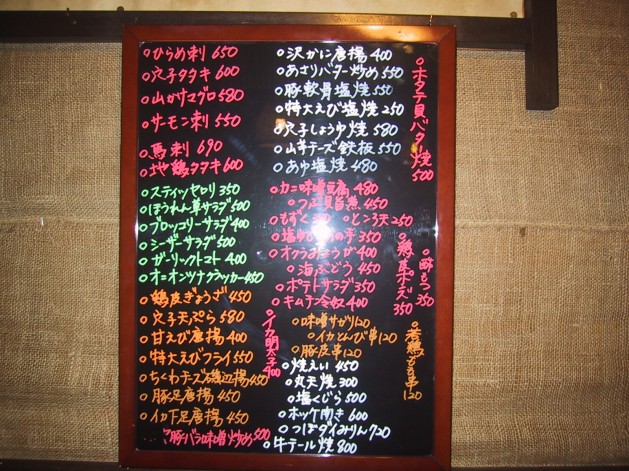 ○ひらめ刺 650
○穴子タタキ 600
○山かけマグロ 580
○サーモン刺 550
○馬刺 690
○地鶏タタキ 600
○スティックセロリ 350
○ほうれん草サラダ 500
○ブロッコリーサラダ 400
○シーザーサラダ 500
○ガーリックトマト 400
○オニオンツナクラッカー 450
○鶏皮ぎょうざ 450
○穴子天ぷら 580
○甘えび唐揚 400
○特大えびフライ 550
○ちくわチーズ磯辺揚 450
○豚足唐揚 450
○イカ下足唐揚 450
○豚バラ味噌炒め 500
○沢かに唐揚 400
○あさりバター炒め 550
○豚軟骨塩焼 550
○特大えび塩焼 250
○穴子しょうゆ焼 580
○山芋チーズ鉄板 550
○あゆ塩焼 480
○カニ味噌豆腐 480
○つぶ貝旨煮 450
○もずく ○ところ天 250
の手 350
○オクラみょうが 400
○海ぶどう 450
○ポテトサラダ 350
○キムチ冷奴 400
○イカ明太子 400
○味噌サガリ 120
○イカとんび串 120
○豚皮串 120
○焼えい 450
○丸天焼 300
○塩くじら 500
○ホッケ開き 600
○つぼダイみりん 720
○牛テール焼 800
○ホタテ貝バター焼 500
○鶏皮ポン酢 350
○酢もつ 350
○若鶏 串 120